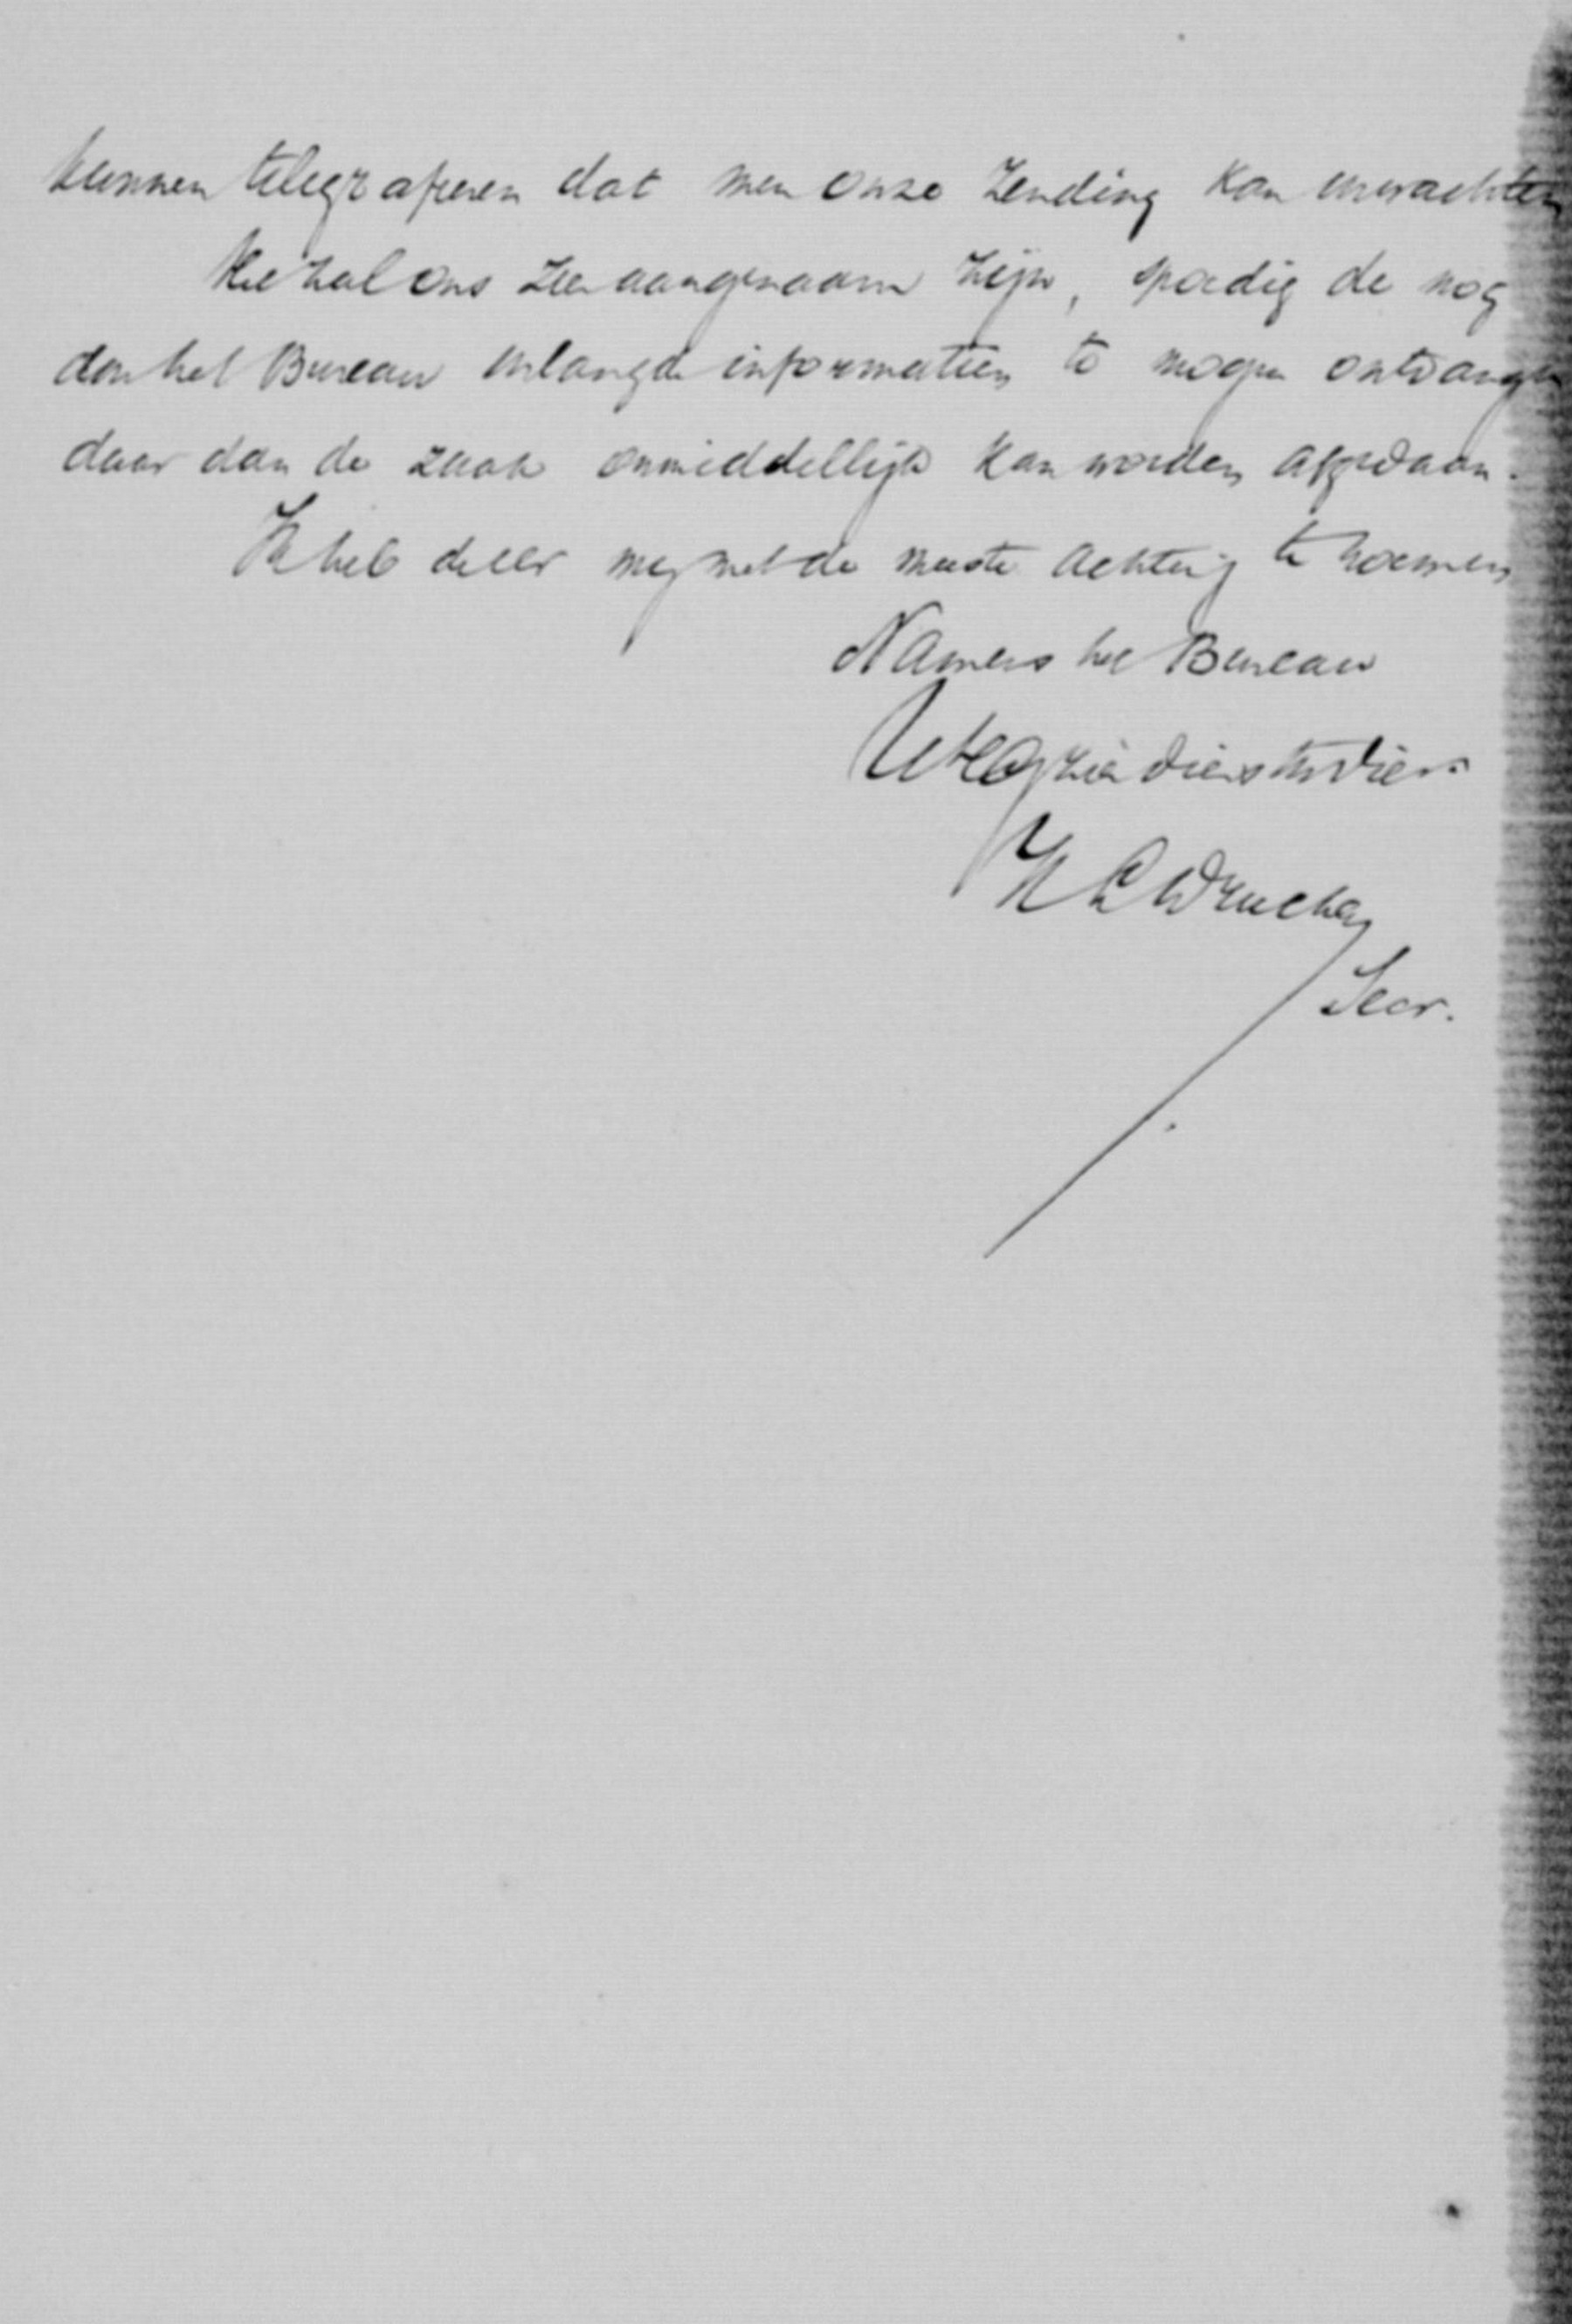 kunnen telegrafeeren dat men onze zending kan verwachten
Het zal ons zeer aangenaam zijn, spoedig de nog
door het Bureau verlangde informatien te mogen ontvangen
daar dan de zaak onmiddellijk kan worden afgedaan.
Ik heb de eer mij met de meeste achting te noemen
Namens het Bureau
UwEdg dienstw dien
H L Drucker
Secr.